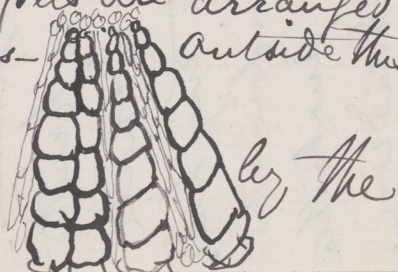 are arranged
s- outside the
by the